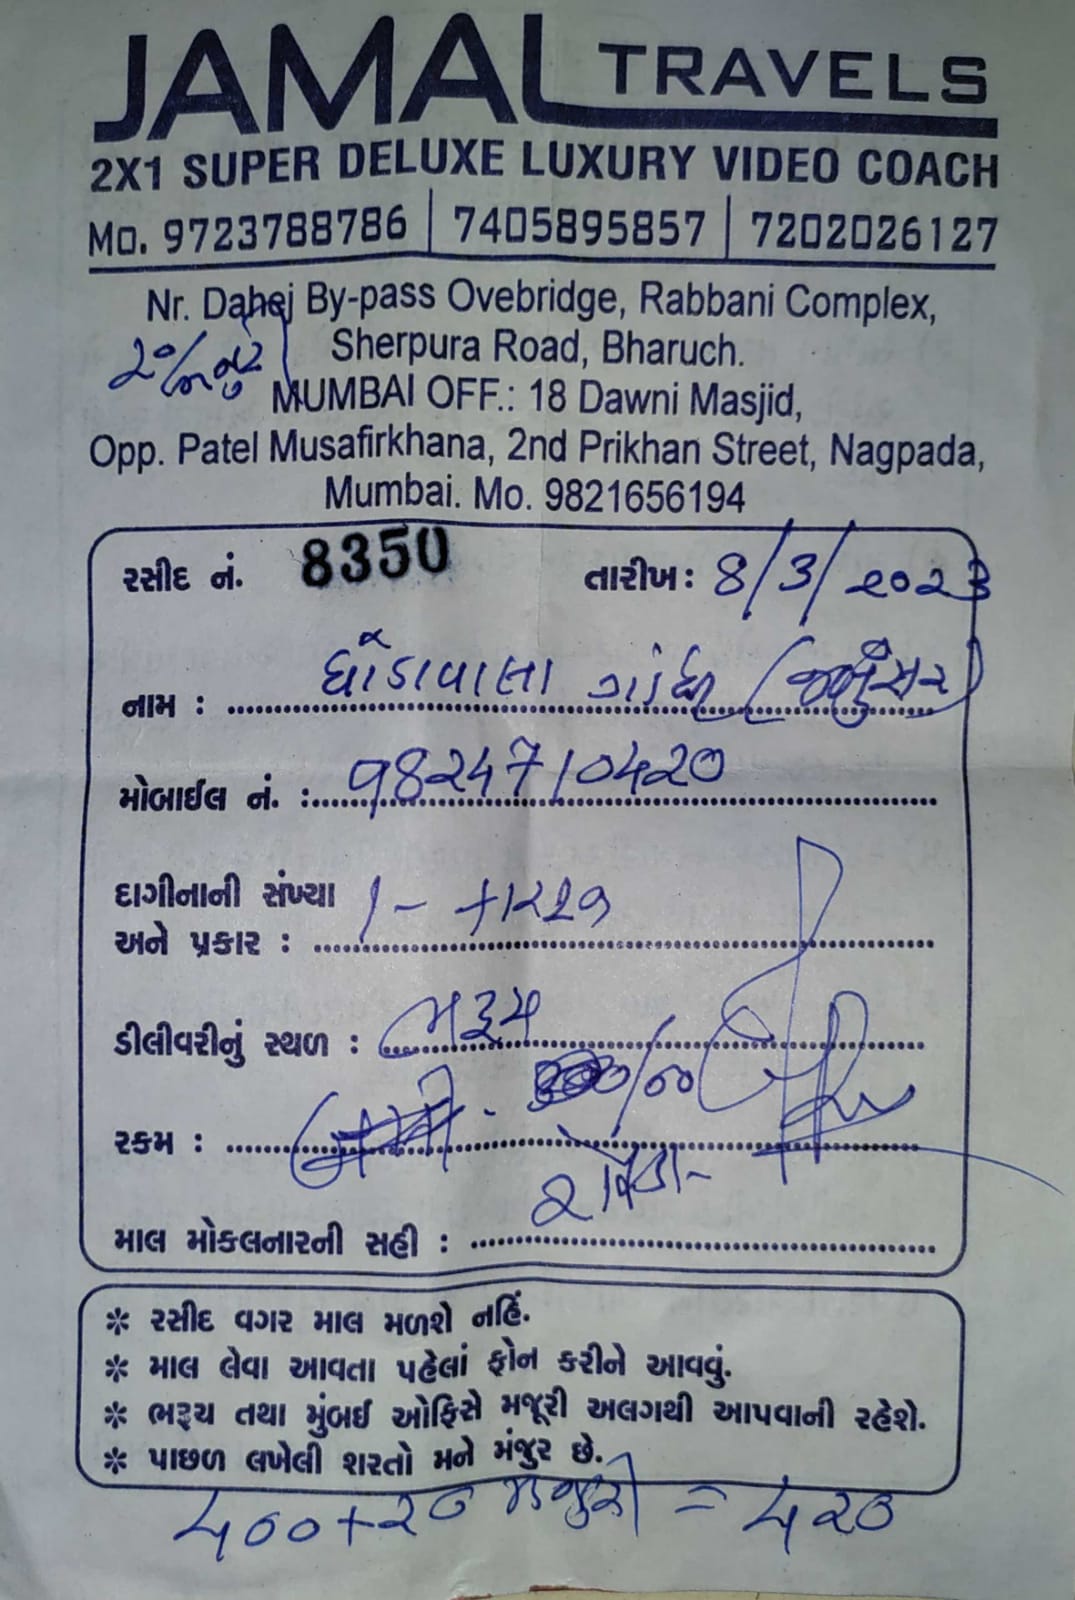 JAMAL TRAVELS
2X1 SUPER DELUXE LUXURY VIDEO COACH
Mo. 9723788786 | 7405895857 | 7202026127
Nr. Dahej By-pass Ovebridge, Rabbani Complex,
Sherpura Road, Bharuch.
MUMBAI OFF.: 18 Dawni Masjid,
Opp. Patel Musafirkhana, 2nd Prikhan Street, Nagpada,
Mumbai. Mo. 9821656194
રસીદ નં. 8350 તારીખ: 8/3/૨૦૨3
નામ : ઘોડાવાલા (જંબુસર)
મોબાઈલ નં. : 9824710420
દાગીનાની સંખ્યા
અને પ્રકાર : 1 -
ડીલીવરીનું સ્થળ : ભરૂચ
રકમ :
માલ મોકલનારની સહી :
* રસીદ વગર માલ મળશે નહિં.
* માલ લેવા આવતા પહેલાં ફોન કરીને આવવું.
* ભરૂચ તથા મુંબઈ ઓફિસે મજૂરી અલગથી આપવાની રહેશે.
* પાછળ લખેલી શરતો મને મંજુર છે.
૪૦૦+૨૦ મજુરી = ૪૨૦